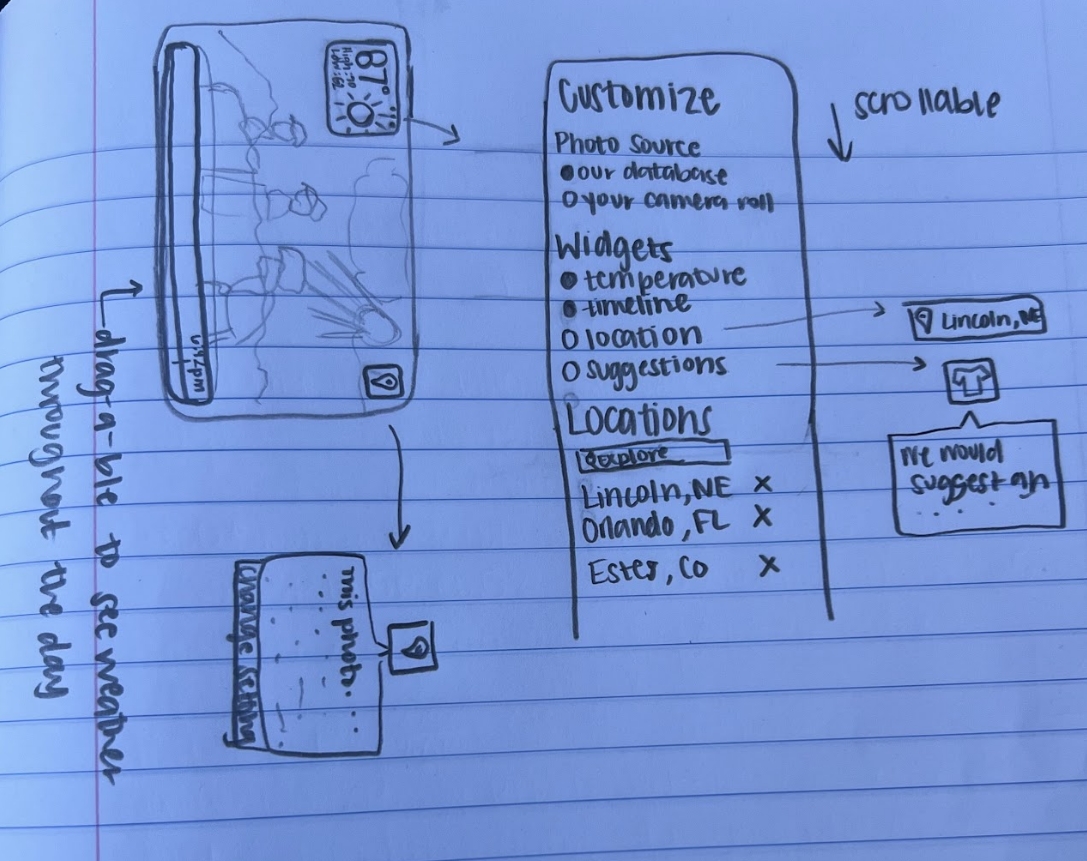 87°
High:90
Low:62
4:42pm
drag-a-ble to see weather
throughout the day
this photo...
change setting
Customize
Photo Source
our database
your camera roll
Widgets
temperature
timeline
location
suggestions
Locations
explore
Lincoln, NE X
Orlando, FL X
Estes, Co X
scrollable
Lincoln, NE
we would
suggest an
. . . . .